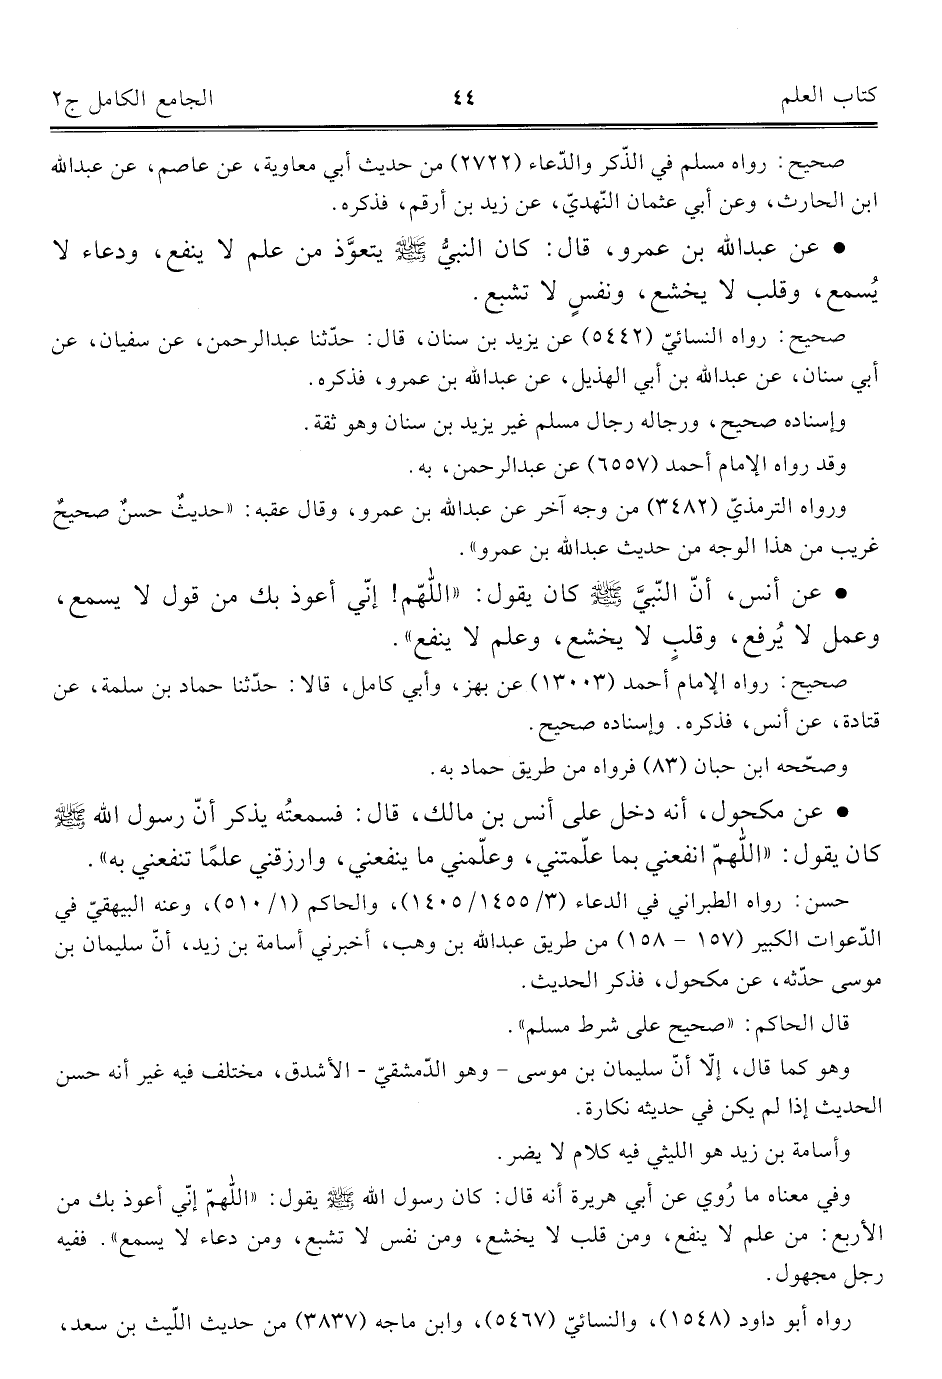 كتاب العلم ٤٤ الجامع الكامل ج٢
صحيح: رواه مسلم في الذّكر والدّعاء (٢٧٢٢) من حديث أبي معاوية، عن عاصم، عن عبدالله
ابن الحارث، وعن أبي عثمان النّهديّ، عن زيد بن أرقم، فذكره.
• عن عبدالله بن عمرو، قال: كان النبيُّ ﷺ يتعوَّذ من علم لا ينفع، ودعاء لا
يُسمع، وقلب لا يخشع، ونفسٍ لا تشبع.
صحيح: رواه النسائيّ (٥٤٤٢) عن يزيد بن سنان، قال: حدّثنا عبدالرحمن، عن سفيان، عن
أبي سنان، عن عبدالله بن أبي الهذيل، عن عبدالله بن عمرو، فذكره.
وإسناده صحيح، ورجاله رجال مسلم غير يزيد بن سنان وهو ثقة.
وقد رواه الإمام أحمد (٦٥٥٧) عن عبدالرحمن، به.
ورواه الترمذيّ (٣٤٨٢) من وجه آخر عن عبدالله بن عمرو، وقال عقبه: «حديثٌ حسنٌ صحيحٌ
غريب من هذا الوجه من حديث عبدالله بن عمرو».
• عن أنس، أنّ النّبيَّ ﷺ كان يقول: «اللّٰهّم! إنّي أعوذ بك من قول لا يسمع،
وعمل لا يُرفع، وقلبٍ لا يخشع، وعلم لا ينفع».
صحيح: رواه الإمام أحمد (١٣٠٠٣) عن بهز، وأبي كامل، قالا: حدّثنا حماد بن سلمة، عن
قتادة، عن أنس، فذكره. وإسناده صحيح.
وصحّحه ابن حبان (٨٣) فرواه من طريق حماد به.
• عن مكحول، أنه دخل على أنس بن مالك، قال: فسمعتُه يذكر أنّ رسول الله ﷺ
كان يقول: «اللّٰهمّ انفعني بما علّمتني، وعلّمني ما ينفعني، وارزقني علمًا تنفعني به».
حسن: رواه الطبراني في الدعاء (٣/ ١٤٥٥/ ١٤٠٥)، والحاكم (١/ ٥١٠)، وعنه البيهقيّ في
الدّعوات الكبير (١٥٧ - ١٥٨) من طريق عبدالله بن وهب، أخبرني أسامة بن زيد، أنّ سليمان بن
موسى حدّثه، عن مكحول، فذكر الحديث.
قال الحاكم: «صحيح على شرط مسلم».
وهو كما قال، إلّا أنّ سليمان بن موسى - وهو الدّمشقيّ - الأشدق، مختلف فيه غير أنه حسن
الحديث إذا لم يكن في حديثه نكارة.
وأسامة بن زيد هو الليثي فيه كلام لا يضر.
وفي معناه ما رُوي عن أبي هريرة أنه قال: كان رسول الله ﷺ يقول: «اللّٰهمّ إنّي أعوذ بك من
الأربع: من علم لا ينفع، ومن قلب لا يخشع، ومن نفس لا تشبع، ومن دعاء لا يسمع». ففيه
رجل مجهول.
رواه أبو داود (١٥٤٨)، والنسائيّ (٥٤٦٧)، وابن ماجه (٣٨٣٧) من حديث اللّيث بن سعد،